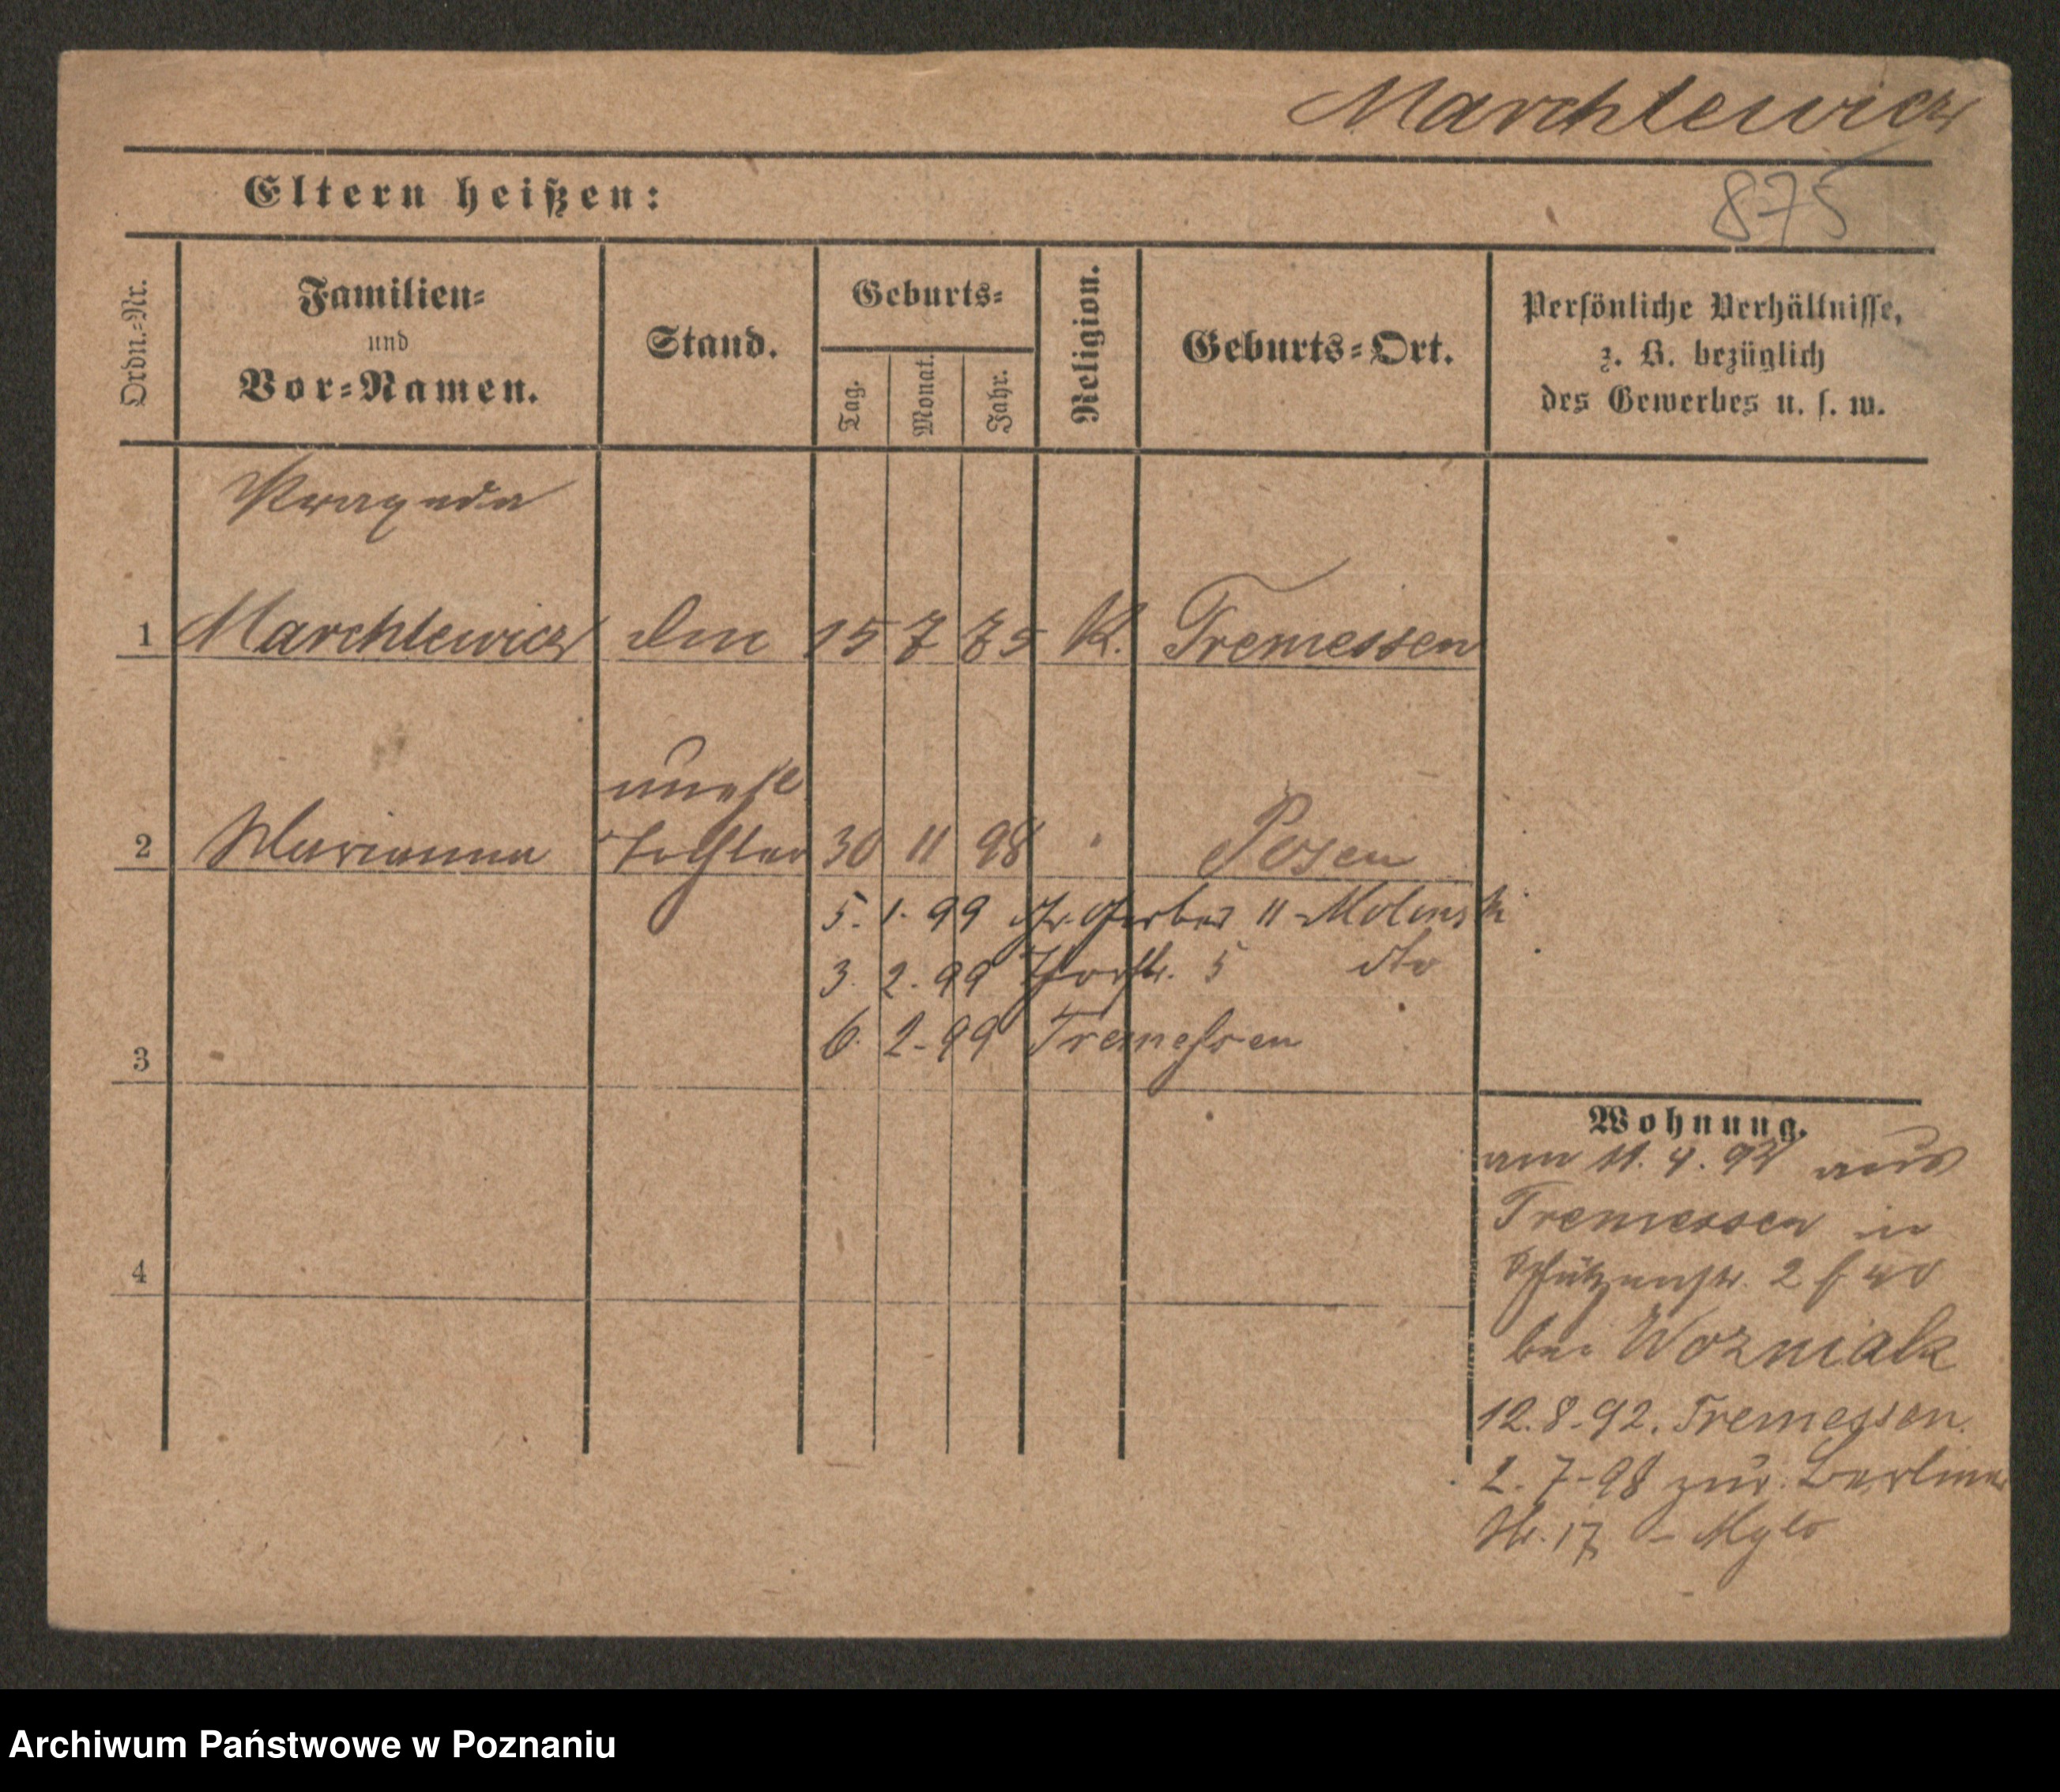 Marchlewicz
Eltern heißen:
875
Ordn.-Nr.
Familien-
und
Vor-Namen.
Stand.
Geburts-
Tag.
Monat.
Jahr.
Religion.
Geburts-Ort.
Persönliche Verhältnisse,
z. B. bezüglich
des Gewerbes u. s. w.
Praxeda
1 Marchlewicz 15 7 75 K. Tremessen
unehl
2 Marianna Tochter 30 11 98 " Posen
5. 1. 99 Gr. Gerber 11 - Molinski
3. 2. 99 Thorstr. 5 dto
3 6. 2. 99 Tremessen
4
Wohnung.
am 11. 4. aus
Tremessen in
Schützenstr. 2
bei Wozniak
12. 8. 92. Tremessen.
2. 7. 98 zur. Berliner
Str. 17 - Mylo
Archiwum Państwowe w Poznaniu